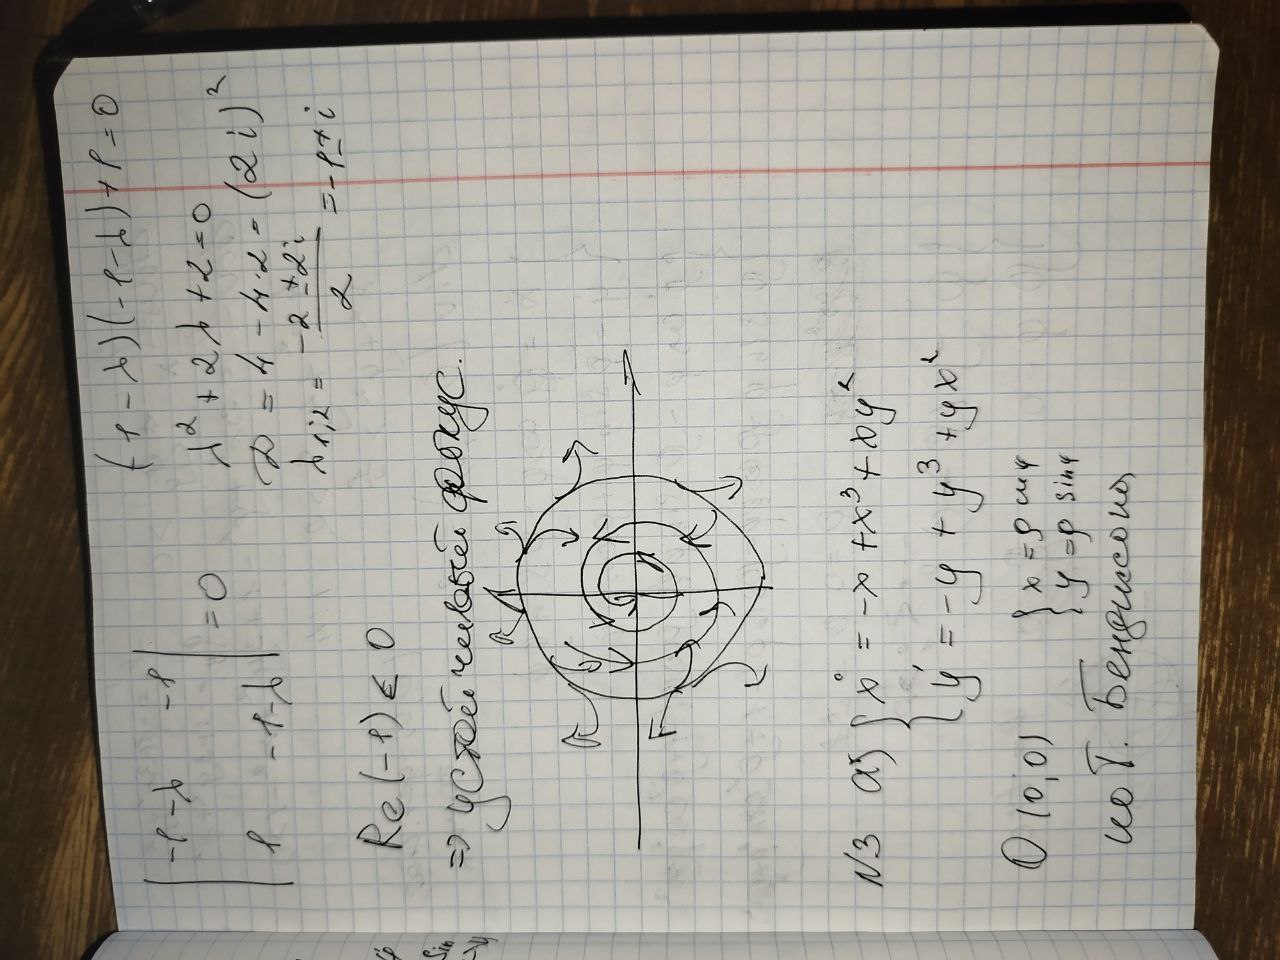 | -1-λ -1 |
| 1 -1-λ | = 0
(-1-λ)(-1-λ)+1=0
λ²+2λ+2=0
D=4-4·2=(2i)²
λ1,2 = (-2±2i)/2 = -1±i
Re(-1) < 0
=> устойчивый фокус.
N3 а) { x° = -x + x³ + xy²
{ y' = -y + y³ + yx²
O (0,0) { x = ρ cosφ
{ y = ρ sinφ
по т. Бендиксона,